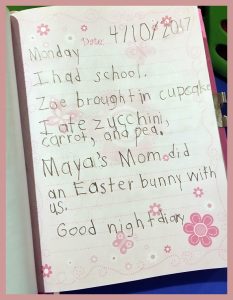 Date 4/10/2017
Monday
I had school.
Zoe brought in cupcake
I ate zucchini,
carrot, and pea.
Maya's Mom did
an Easter bunny with
us.
Good night diary